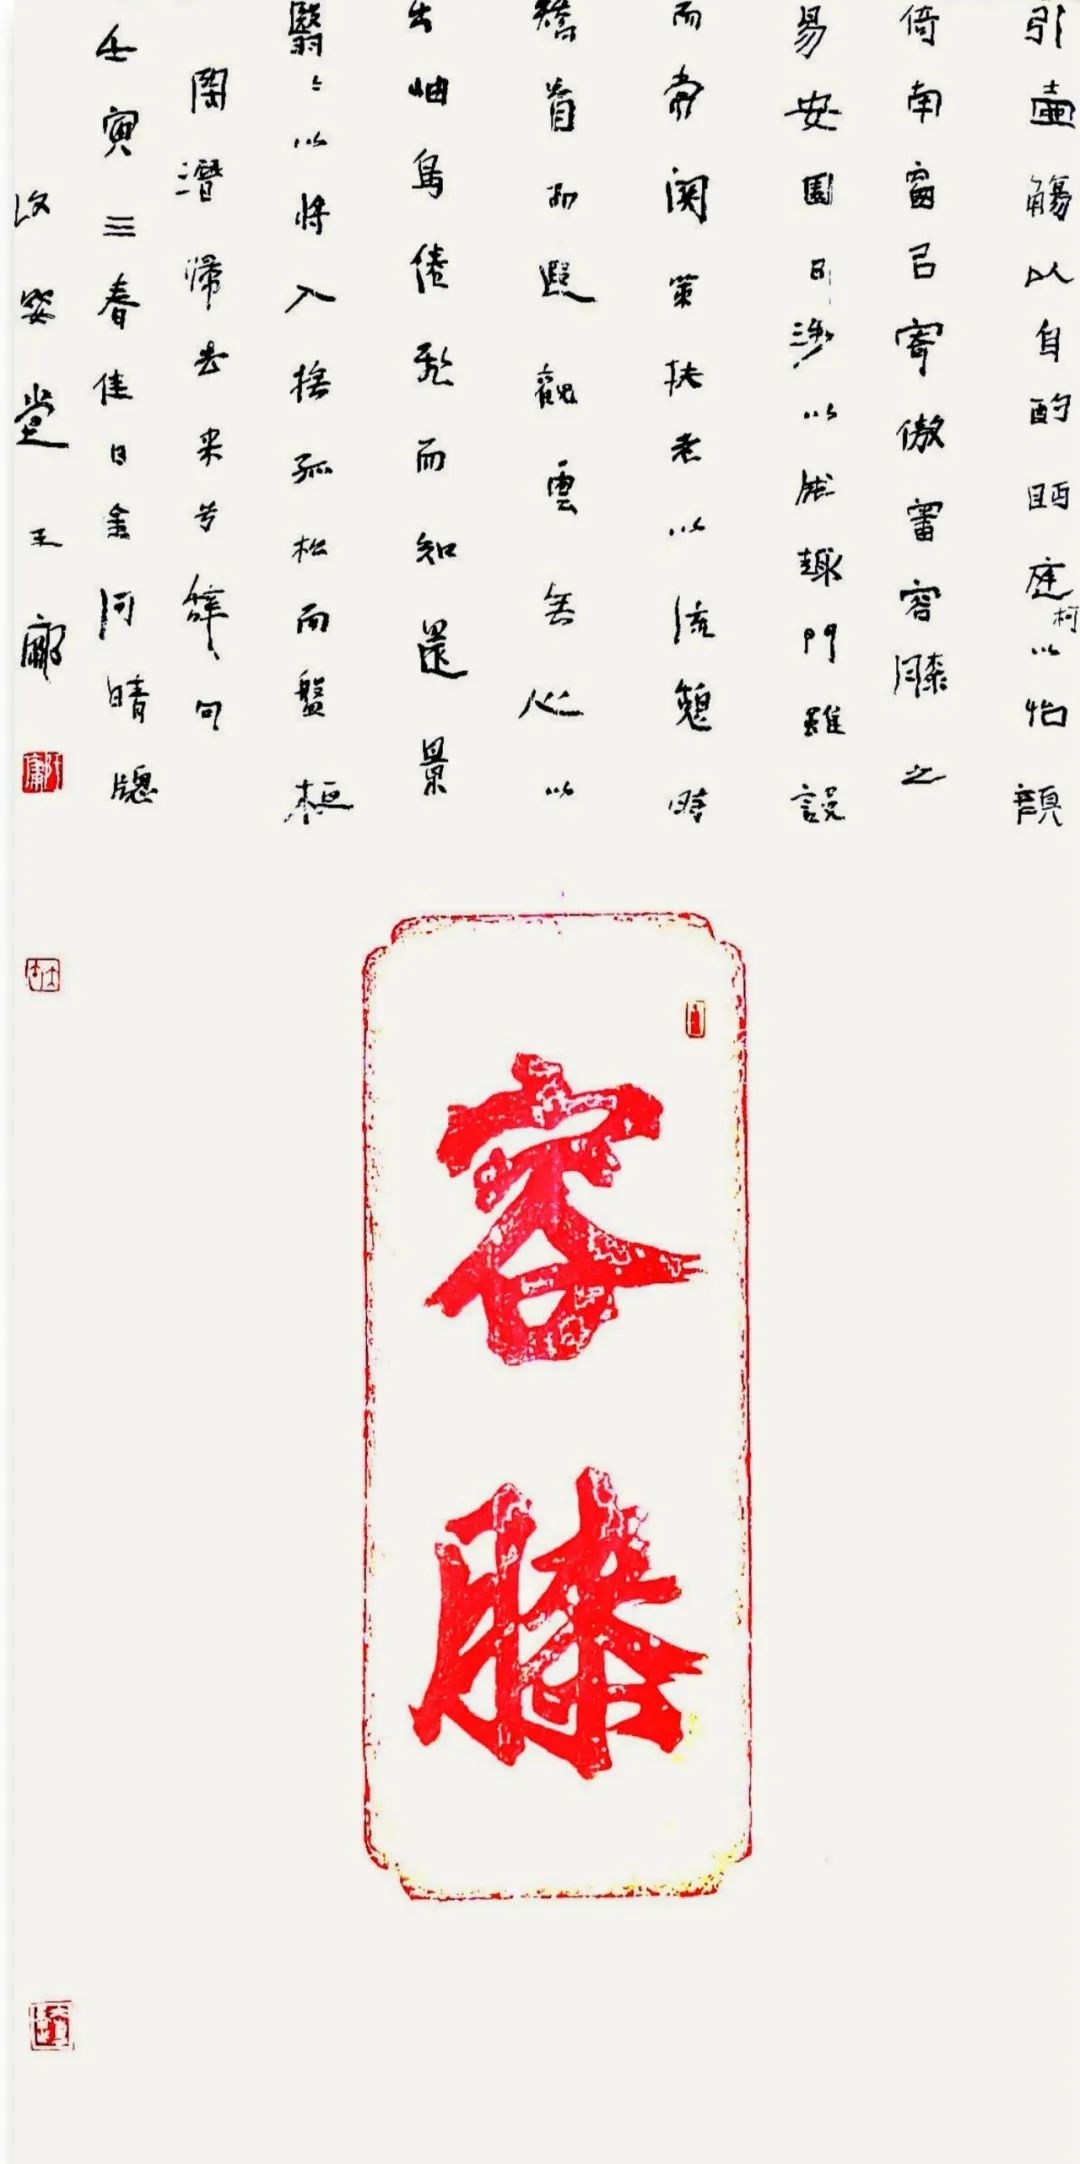 引壶觴以自酌眄庭柯以怡顔
倚南窗以寄傲審容膝之
易安園日涉以成趣門雖設
而常関策扶老以流憩時
矯首而遐觀雲無心以
出岫鳥倦飛而知還景
翳〻以將入撫孤松而盤桓
陶潛歸去来兮辭句
壬寅三春佳日金河晴牕
王
容膝